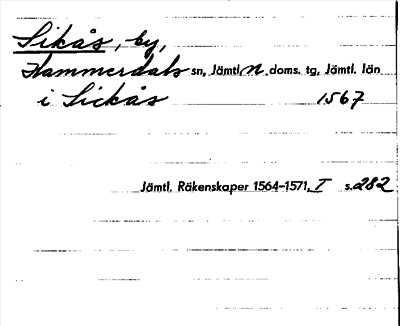 Sikås, by,
Hammerdals sn, Jämtl. n. doms. tg, Jämtl. län
i Sickås 1567
Jämtl. Räkenskaper 1564-1571, I s. 282